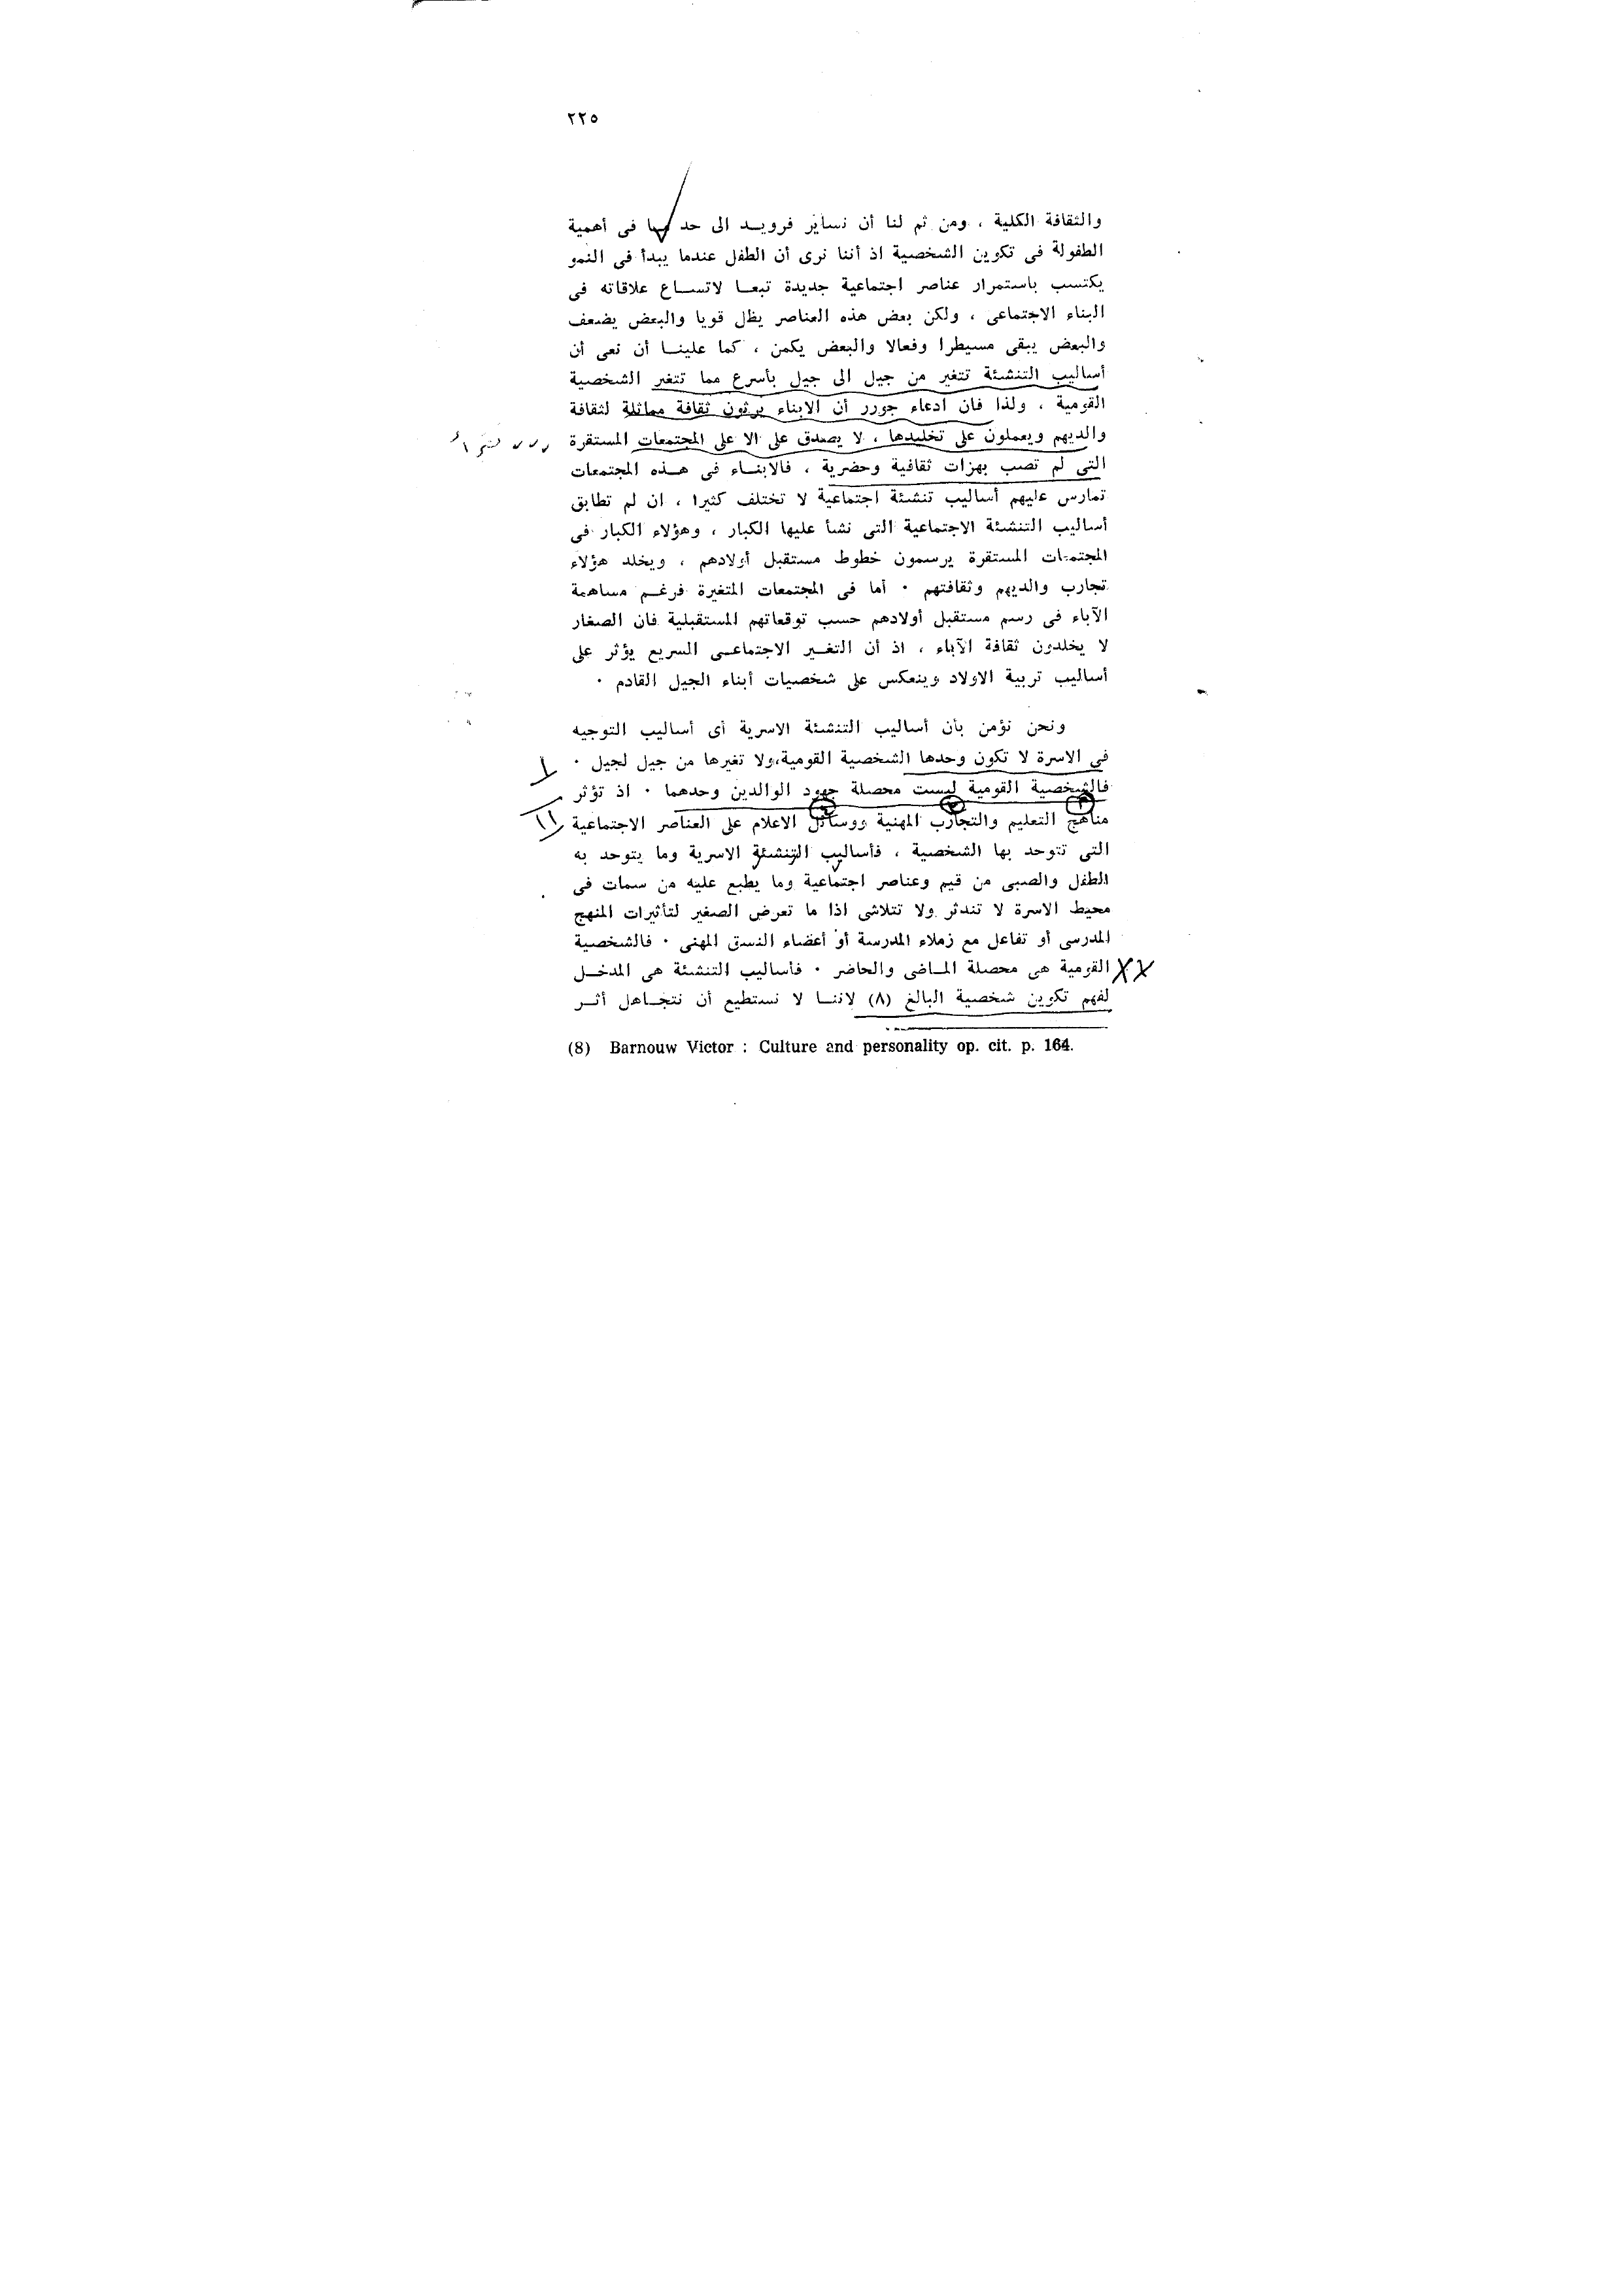 ٢٢٥
والثقافة الكلية ، ومن ثم لنا أن نساير فرويــد الى حد ما فى أهمية
الطفولة فى تكوين الشخصية اذ أننا نرى أن الطفل عندما يبدأ فى النمو
يكتسب باستمرار عناصر اجتماعية جديدة تبعــا لاتســاع علاقاته فى
البناء الاجتماعى ، ولكن بعض هذه العناصر يظل قويا والبعض يضعف
والبعض يبقى مسيطرا وفعالا والبعض يكمن ، كما علينــا أن نعى أن
أساليب التنشئة تتغير من جيل الى جيل بأسرع مما تتغير الشخصية
القومية ، ولذا فان ادعاء جورر أن الابناء يرثون ثقافة مماثلة لثقافة
والديهم ويعملون على تخليدها ، لا يصدق على الا على المجتمعات المستقرة
التى لم تصب بهزات ثقافية وحضرية ، فالابنــاء فى هــذه المجتمعات
تمارس عليهم أساليب تنشئة اجتماعية لا تختلف كثيرا ، ان لم تطابق
أساليب التنشئة الاجتماعية التى نشأ عليها الكبار ، وهؤلاء الكبار فى
المجتمعات المستقرة يرسمون خطوط مستقبل أولادهم ، ويخلد هؤلاء
تجارب والديهم وثقافتهم ٠ أما فى المجتمعات المتغيرة فرغــم مساهمة
الآباء فى رسم مستقبل أولادهم حسب توقعاتهم المستقبلية فان الصغار
لا يخلدون ثقافة الآباء ، اذ أن التغــير الاجتماعــى السريع يؤثر على
أساليب تربية الاولاد وينعكس على شخصيات أبناء الجيل القادم ٠
ونحن نؤمن بأن أساليب التنشئة الاسرية أى أساليب التوجيه
فى الاسرة لا تكون وحدها الشخصية القومية،ولا تغيرها من جيل لجيل ٠
فالشخصية القومية ليست محصلة جهود الوالدين وحدهما ٠ اذ تؤثر
مناهج التعليم والتجارب المهنية ووسائل الاعلام على العناصر الاجتماعية
التى تتوحد بها الشخصية ، فأساليب التنشئة الاسرية وما يتوحد به
الطفل والصبى من قيم وعناصر اجتماعية وما يطبع عليه من سمات فى
محيط الاسرة لا تندثر ولا تتلاشى اذا ما تعرض الصغير لتأثيرات المنهج
المدرسى أو تفاعل مع زملاء المدرسة أو أعضاء النسق المهنى ٠ فالشخصية
القومية هى محصلة المــاضى والحاضر ٠ فأساليب التنشئة هى المدخــل
لفهم تكوين شخصية البالغ (٨) لاننــا لا نستطيع أن نتجــاهل أثــر
(8) Barnouw Victor : Culture and personality op. cit. p. 164.